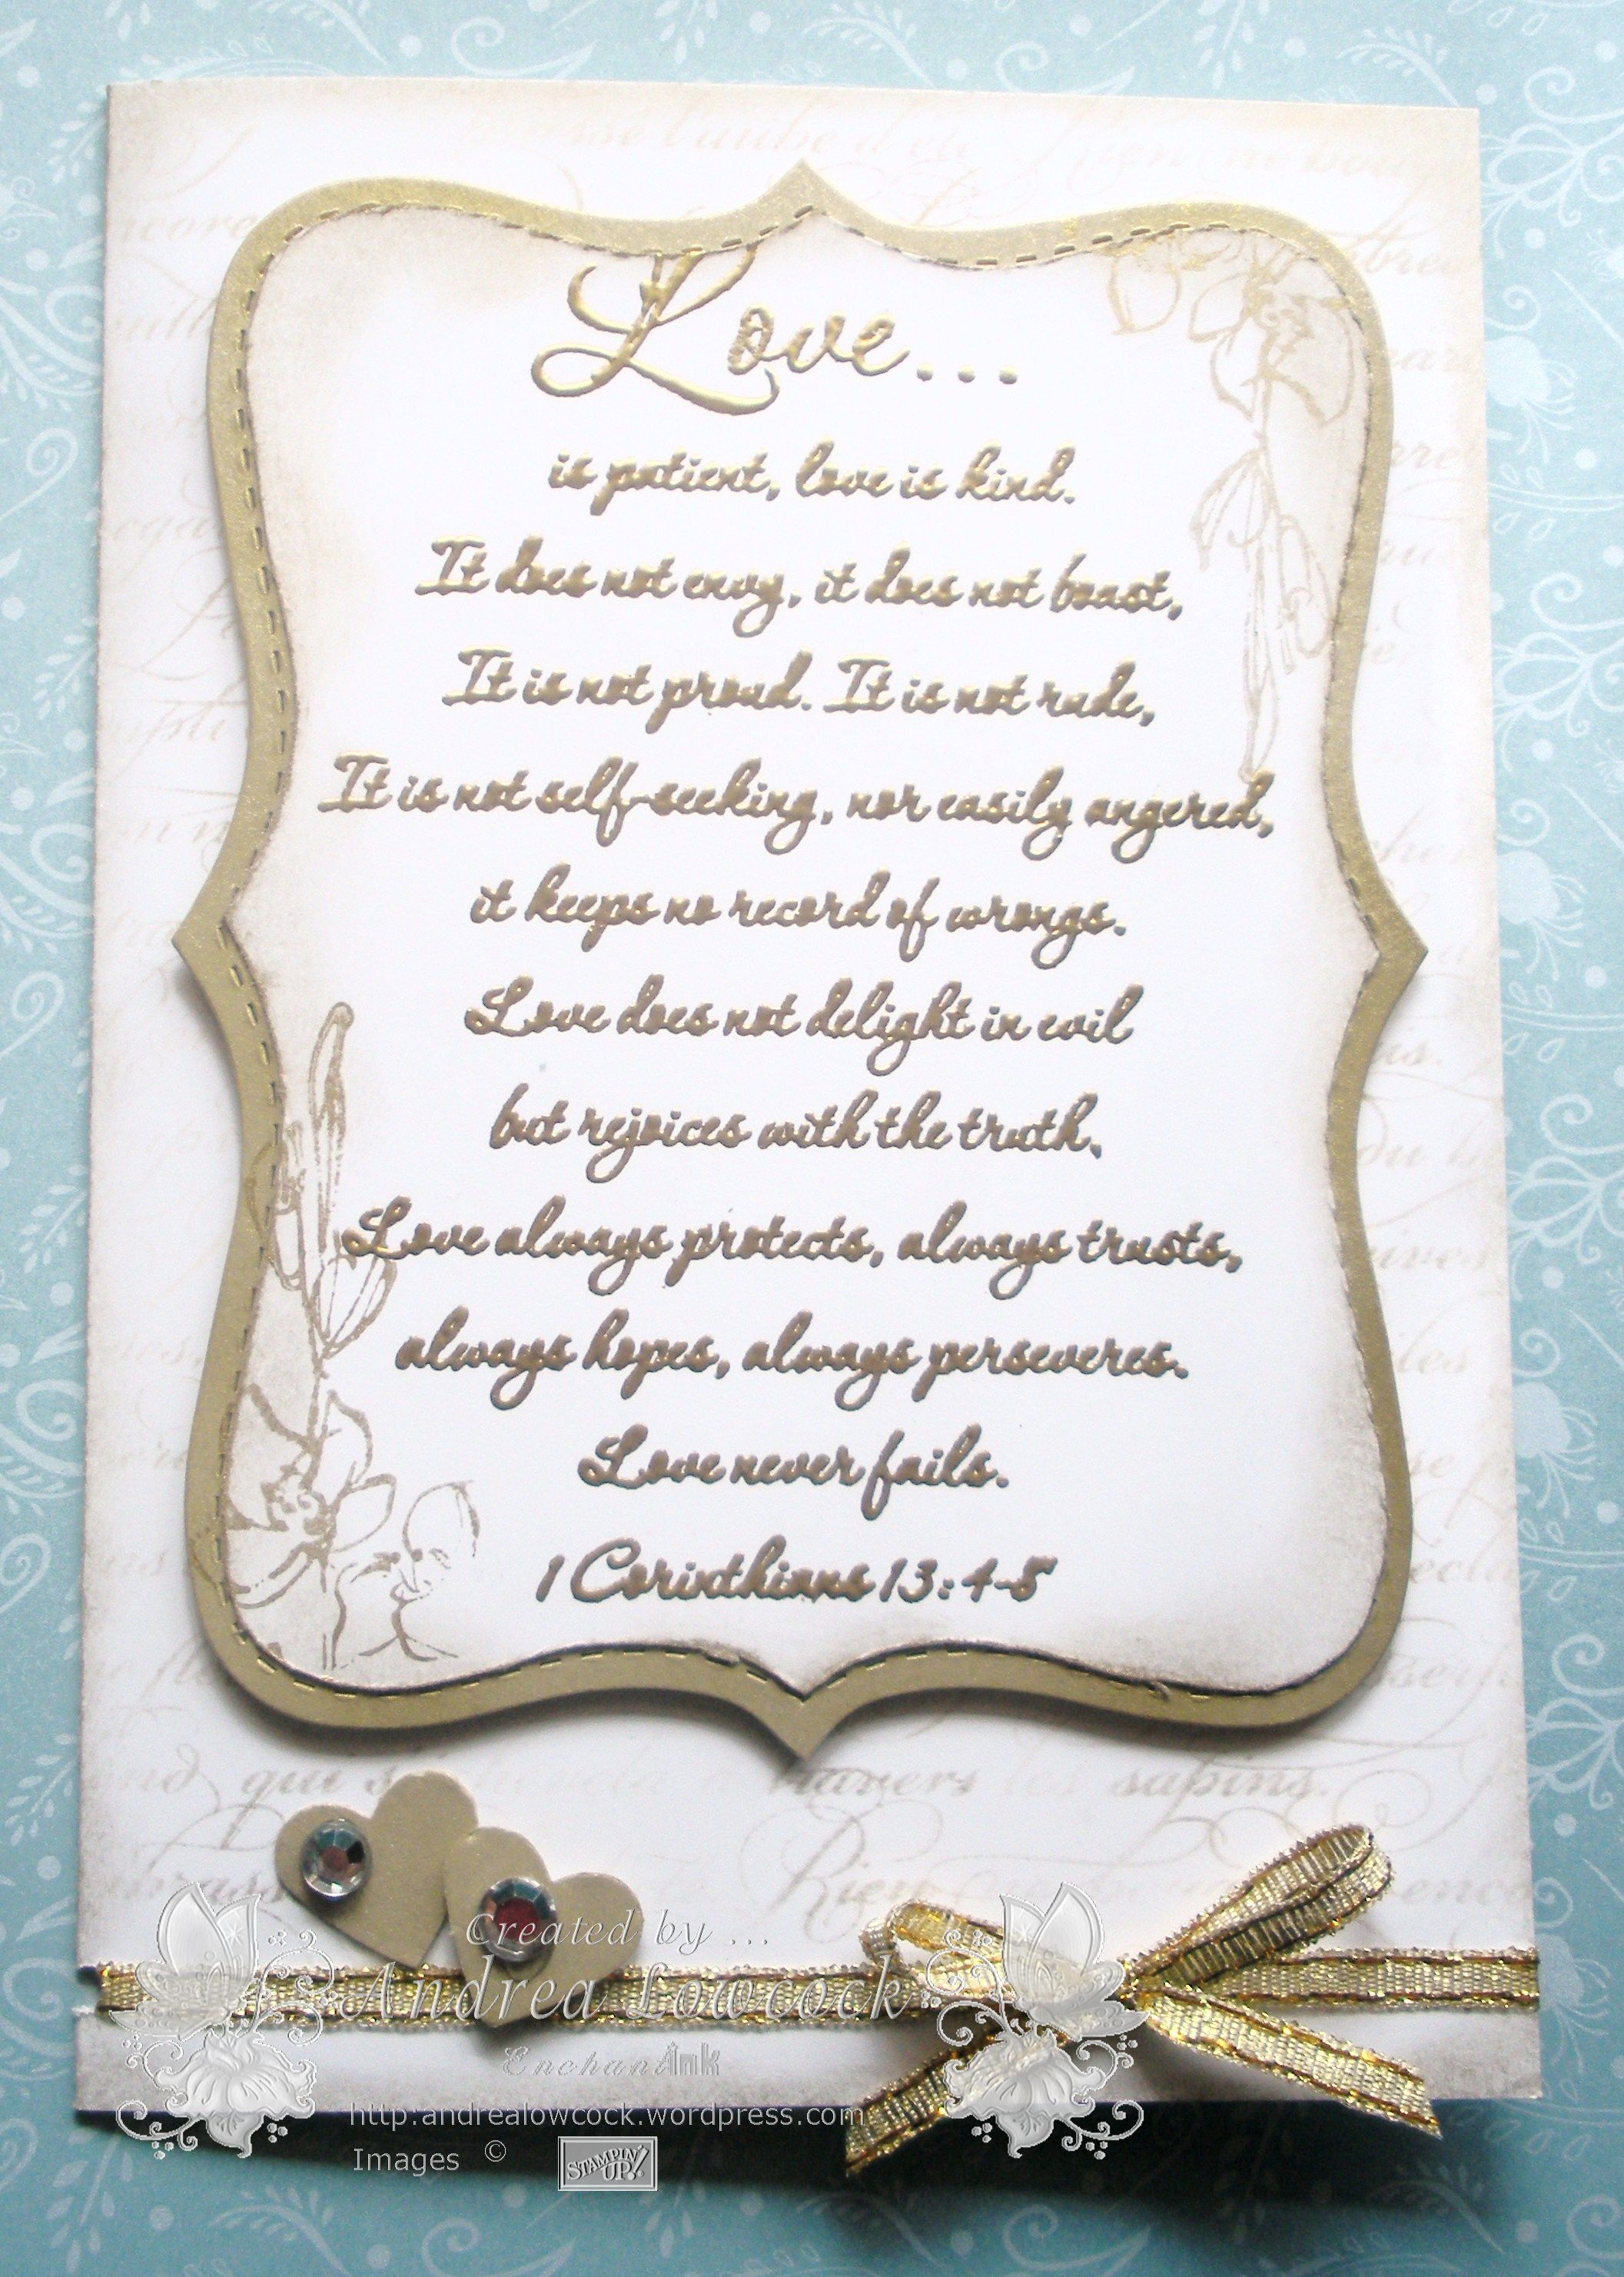 Love...
is patient, love is kind.
It does not envy, it does not boast,
It is not proud. It is not rude,
It is not self-seeking, nor easily angered,
it keeps no record of wrongs.
Love does not delight in evil
but rejoices with the truth.
Love always protects, always trusts,
always hopes, always perseveres.
Love never fails.
1 Corinthians 13:4-8
qui
travers les sapins.
Rien
Created by ...
Andrea Lowcock
EnchantInk
http:andrealowcock.wordpress.com
Images ©
STAMPIN'
UP!